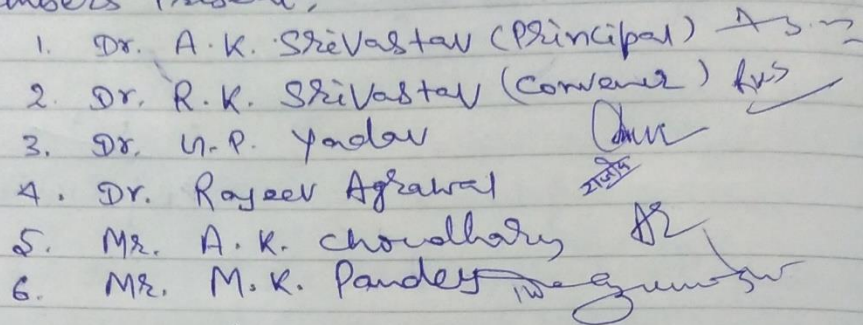 Members Present,
1. Dr. A.K. Srivastav (Principal)
2. Dr. R.K. Srivastav (Convener)
3. Dr. U.P. Yadav
4. Dr. Rajeev Agrawal राजीव
5. Mr. A.K. Choudhary
6. Mr. M.K. Pandey